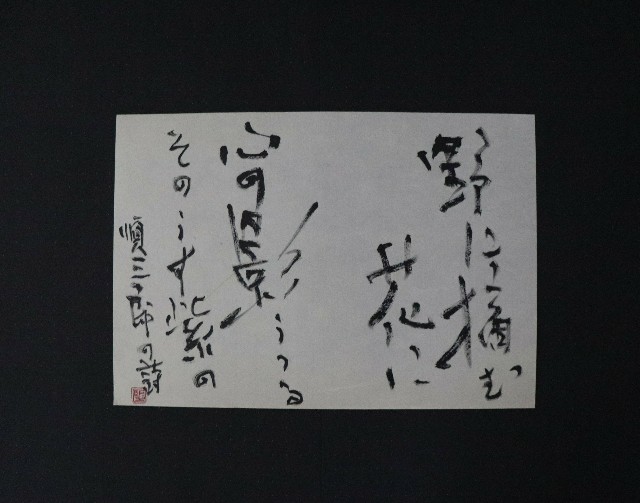 野に摘む
花に
心の影
うつる
そのうす紫の
順三郎の詩